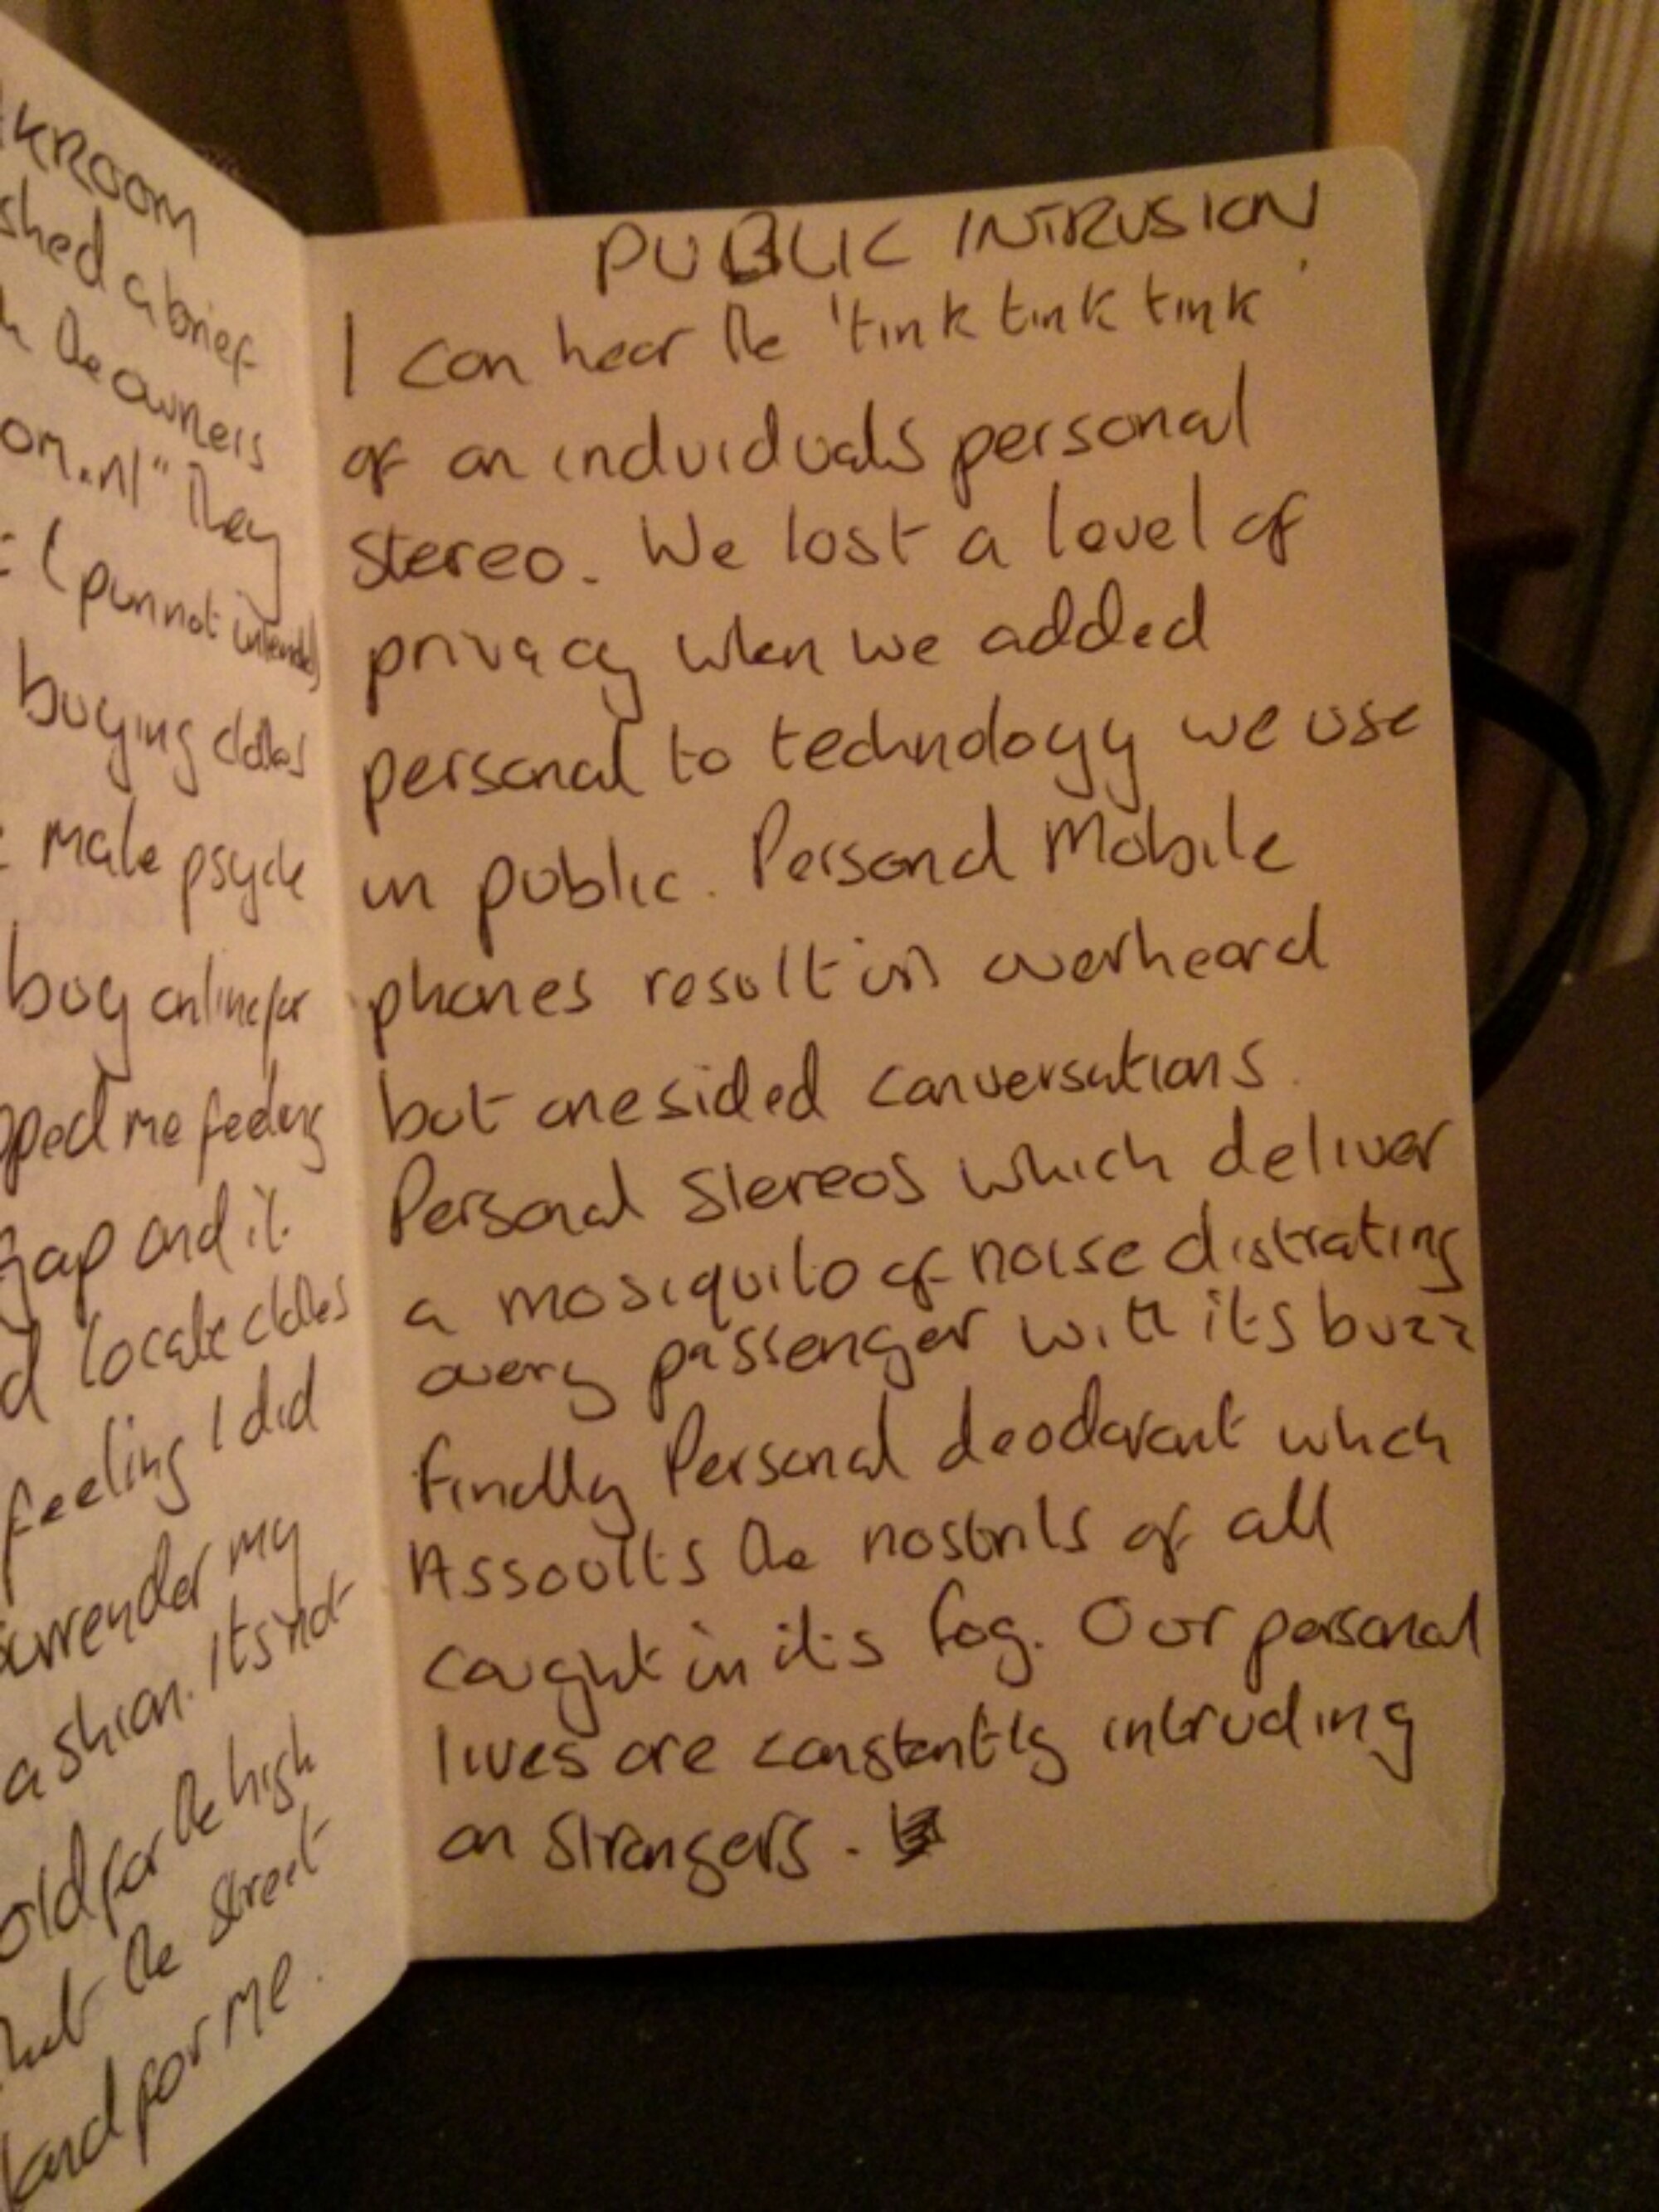 KROOM
shed a brief
the owners
om.nl" They
(pun not intended)
buying clothes
male psyche
buy online for
pped me feeling
gap and it
d locate clothes
feeling I did
surrender my
ashion. Its not
old for the high
but the street
land for me.
PUBLIC INTRUSION
I can hear the 'tink tink tink'
of an individuals personal
stereo. We lost a level of
privacy when we added
personal to technology we use
in public. Personal Mobile
phones result in overheard
but onesided conversations.
Personal Stereos which deliver
a mosiquito of noise distrating
every passenger with its buzz
finally Personal deodarant which
Assaults the nostrils of all
caught in its fog. Our personal
lives are constantly intruding
on strangers.